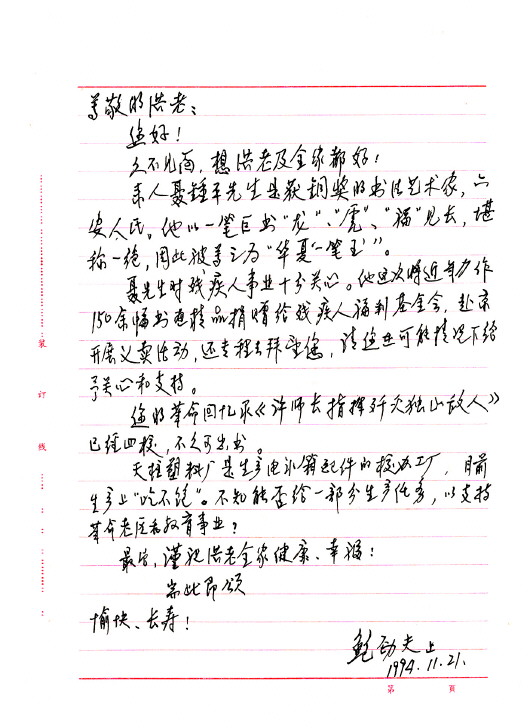 尊敬的洪老：
您好！
久不见面，想洪老及全家都好！
来人聂锺平先生是获铜奖的书法艺术家，六
安人氏。他以一笔巨书“龙”、“虎”、“福”见长，堪
称一绝，因此被誉之为“华夏一笔王”。
聂先生对残疾人事业十分关心。他这次将近年力作
150余幅书画精品捐赠给残疾人福利基金会，赴京
开展义卖活动，还专程去拜望您，请您在可能情况下给
予关心和支持。
您的革命回忆录《许师长指挥歼灭独山敌人》
已经四校，不久可出书。
天柱塑料厂是生产电冰箱配件的校办工厂，目前
生产上“吃不饱”。不知能否给一部分生产任务，以支持
革命老区和教育事业？
最后，谨祝洪老全家健康、幸福！
耑此即颂
愉快、长寿！
鲍劲夫上
1994.11.21.
装
订
线
第 页